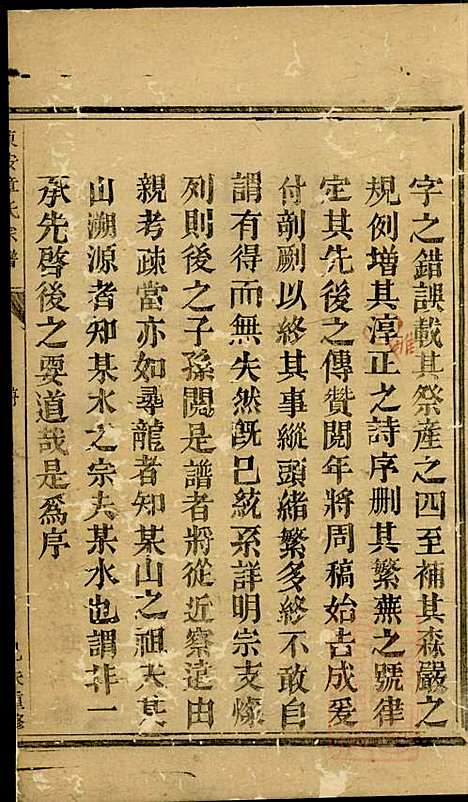 字之錯誤載其祭產之四至補其森嚴之
規例增其淳正之詩序删其繁蕪之號律
定其先後之傳贊閱年將周稿始告成爰
付剞劂以終其事縱頭緒繁多終不敢自
謂有得而無失然旣已統系詳明宗支燦
列則後之子孫閱是譜者將從近察遠由
親考疎當亦如尋龍者知某山之祖夫某
山溯源者知某水之宗夫某水也謂非一
承先啓後之要道哉是爲序
氏宗譜
重修